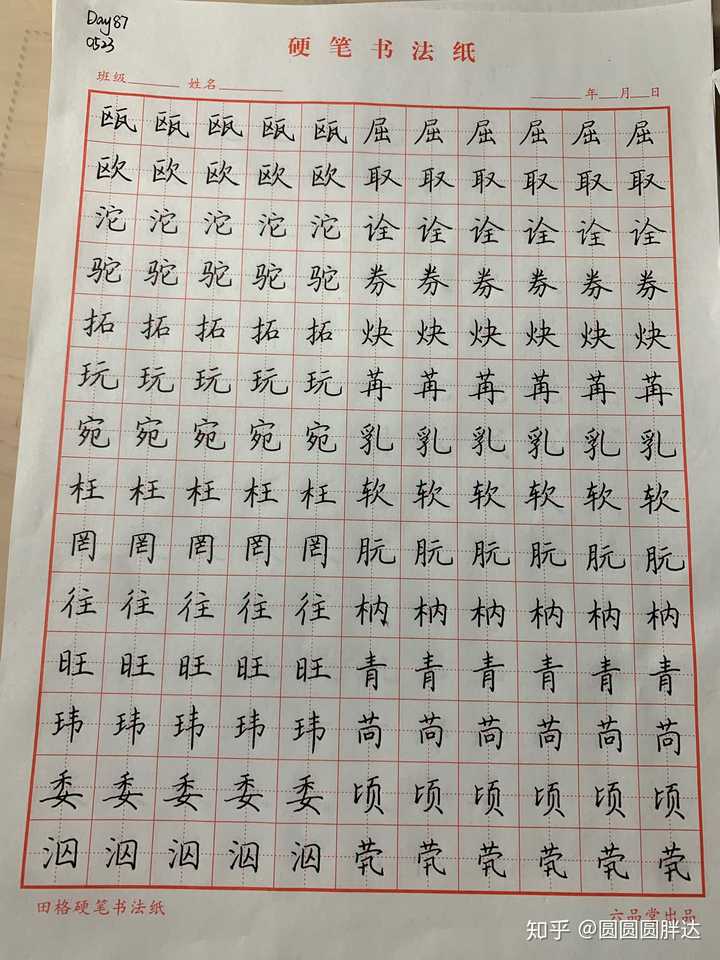 Day 87
0523
硬笔书法纸
班级 姓名 年 月 日
瓯瓯瓯瓯瓯屈屈屈屈屈屈
欧欧欧欧欧取取取取取取
沱沱沱沱沱诠诠诠诠诠诠
驼驼驼驼驼券券券券券券
拓拓拓拓拓炔炔炔炔炔炔
玩玩玩玩玩苒苒苒苒苒苒
宛宛宛宛宛乳乳乳乳乳乳
枉枉枉枉枉软软软软软软
罔罔罔罔罔朊朊朊朊朊朊
往往往往往枘枘枘枘枘枘
旺旺旺旺旺青青青青青青
玮玮玮玮玮苘苘苘苘苘苘
委委委委委顷顷顷顷顷顷
泅泅泅泅泅茕茕茕茕茕茕
田格硬笔书法纸 六品堂出品
知乎 @圆圆圆胖达